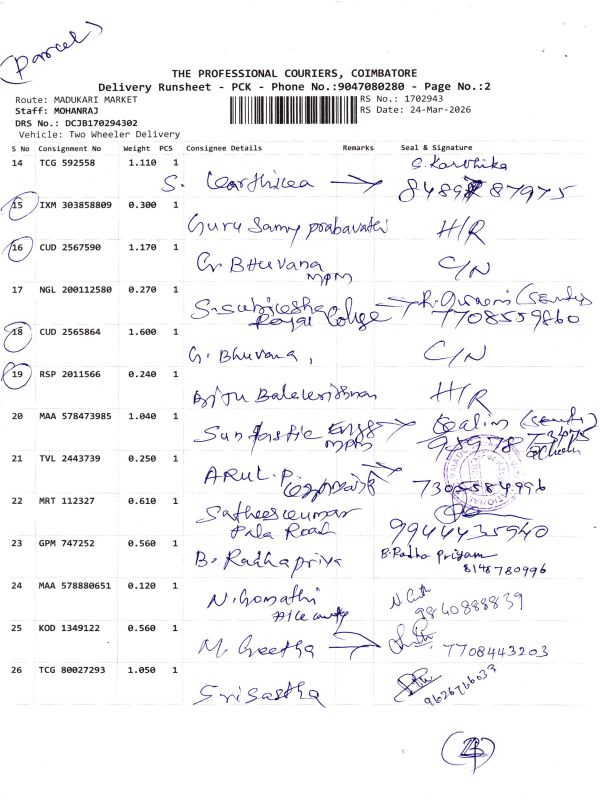 (Parcel)
THE PROFESSIONAL COURIERS, COIMBATORE
Delivery Runsheet - PCK - Phone No.:9047080280 - Page No.:2
Route: MADUKARI MARKET
RS No.: 1702943
Staff: MOHANRAJ
RS Date: 24-Mar-2026
DRS No.: DCJB170294302
Vehicle: Two Wheeler Delivery
S No Consignment No Weight PCS Consignee Details Remarks Seal & Signature
14 TCG 592558 1.110 1
S. Karthika
S. Karthikea
15 IXM 303858809 0.300 1
Guru Samy prabavathi H/R
16 CUD 2567590 1.170 1
G. Bhuvana C/N
MPM
17 NGL 200112580 0.270 1
7708559860
18 CUD 2565864 1.600 1
G. Bhuvana, C/N
19 RSP 2011566 0.240 1
Biju Balakrishnan H/R
20 MAA 578473985 1.040 1
Sun Engg
MPM
21 TVL 2443739 0.250 1
ARUL. P
7305584996
22 MRT 112327 0.610 1
Satheeskumar
Pala Road 9944435940
23 GPM 747252 0.560 1
B. Radhapriya B. Radha Priyam
8148780996
24 MAA 578880651 0.120 1
N. Gomathi
9840888839
25 KOD 1349122 0.560 1
M. Geetha 7708443203
26 TCG 80027293 1.050 1
Srisastha 9626766033